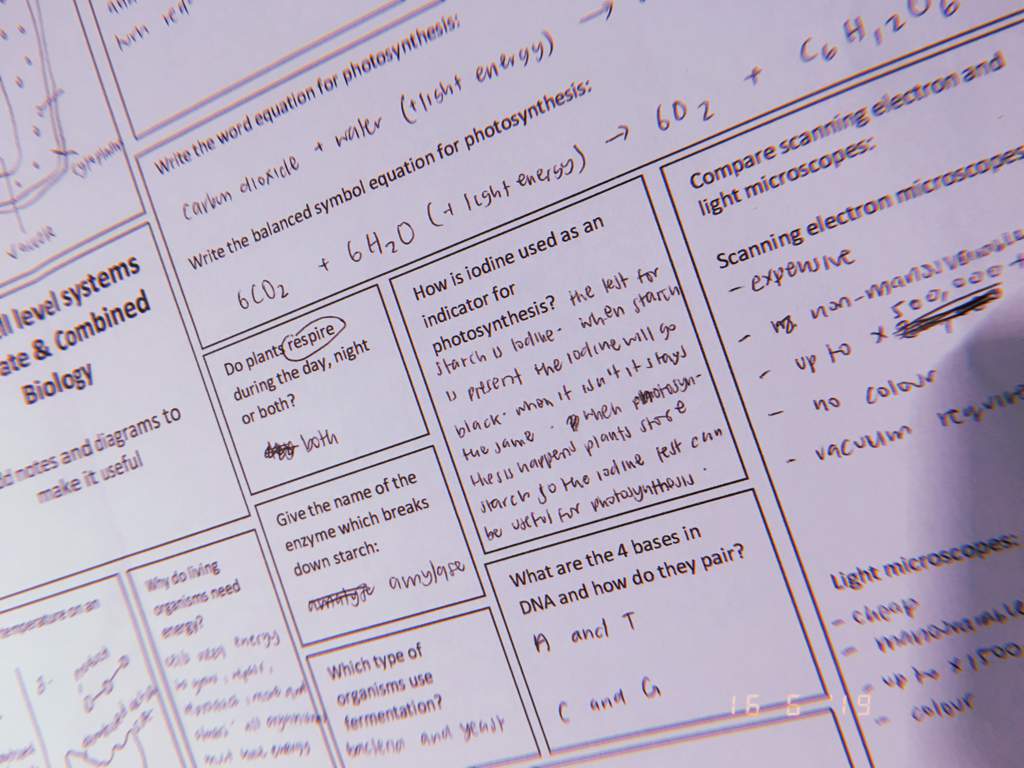 Write the word equation for photosynthesis:
carbon dioxide + water (+light energy) →
Write the balanced symbol equation for photosynthesis:
6CO2 + 6H2O (+ light energy) → 6O2 + C6H12O6
vacuole
level systems
& Combined
Biology
notes and diagrams to
make it useful
Do plants respire
during the day, night
or both?
both
Give the name of the
enzyme which breaks
down starch:
amylase
How is iodine used as an
indicator for
photosynthesis? the test for
starch is iodine. when starch
is present the iodine will go
black. when it isn't it stays
the same. when photosyn-
thesis happens plants store
starch so the iodine test can
be useful for photosynthesis.
Compare scanning electron and
light microscopes:
Scanning electron microscopes
- expensive
- non-manouvenable
500,000
- up to x
- no colour
- vacuum require
Light microscopes:
- cheap
- manouvenable
- up to x1500
- colour
What are the 4 bases in
DNA and how do they pair?
A and T
C and G
temperature on an
Why do living
organisms need
energy?
need energy
to grow, repair,
all organisms
must have energy
Which type of
organisms use
fermentation?
bacteria and yeast
16 6 '19